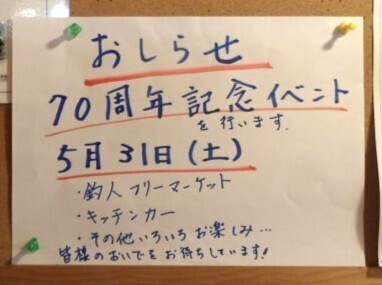 おしらせ
70周年記念イベント
を行います.
5月31日(土)
・釣人フリーマーケット
・キッチンカー
・その他いろいろお楽しみ…
皆様のおいでをお待ちしています!